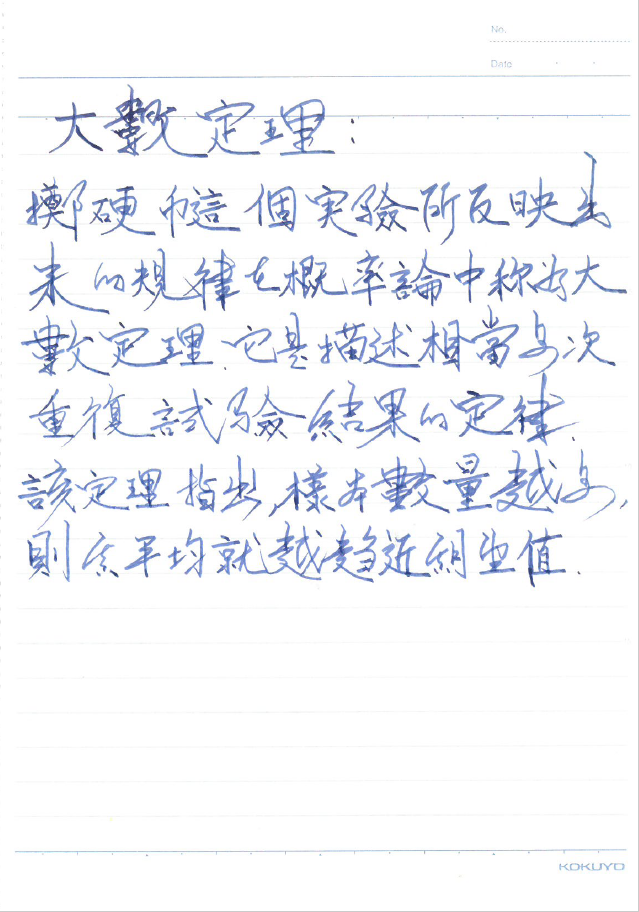 No.
Date
大數定理：
擲硬币這個实驗所反映出
来的規律在概率論中称为大
數定理.它是描述相當多次
重復試驗结果的定律.
該定理指出,樣本數量越多,
則其平均就越趋近期望值.
KOKUYO